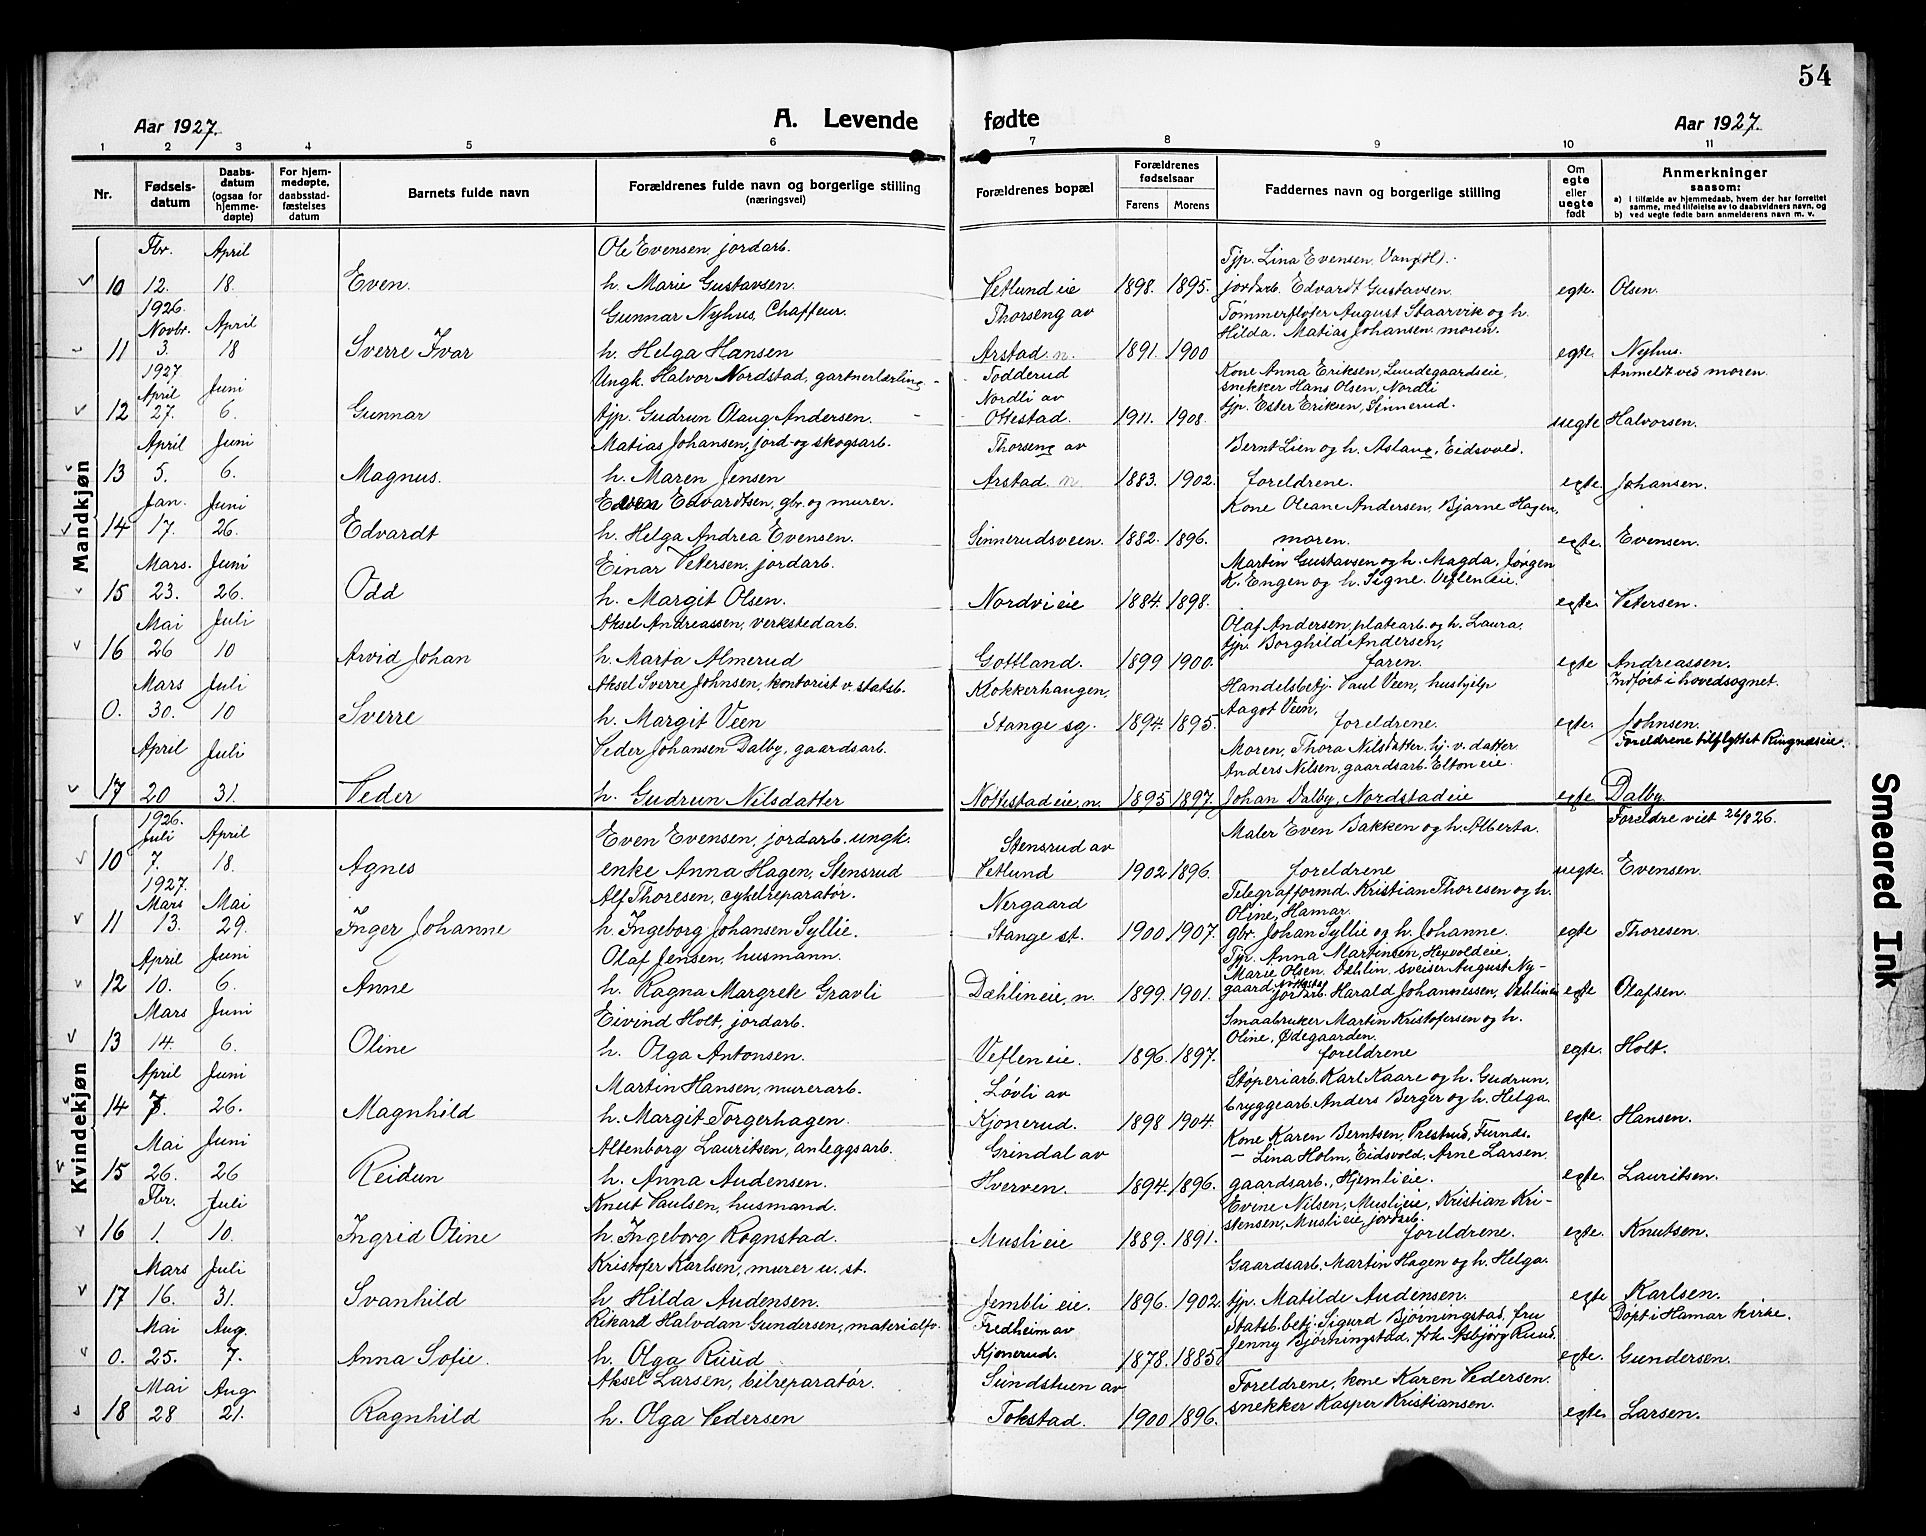 54
Aar 1927. A. Levende fødte Aar 1927.
1 2 3 4 5 6 7 8 9 10 11
Nr. Fødsels-datum Daabs-datum (ogsaa for hjemme-døpte) For hjem-medøpte, daabsstad-fæstelses datum Barnets fulde navn Forældrenes fulde navn og borgerlige stilling (næringsvei) Forældrenes bopæl Forældrenes fødselsaar Farens Morens Faddernes navn og borgerlige stilling Om egte eller uegte født Anmerkninger saasom: a) I tilfælde av hjemmedaab, hvem der har forrettet samme, med tilføielse av to daabsvidners navn, og b) ved uegte fødte barn anmelderens navn m. v.
Mandkjøn
Fbr. April Ole Evensen, jordarb. Tjp. Lina Evensen, Vang H.
10 12. 18. Even. h. Marie Gustavsen. Vetlund eie 1898. 1895. jordarb. Edvardt Gustavsen. egte. Olsen.
1926. Novbr. April Gunnar Nyhus, Chaffeur. Thorseng av Tømmerfløter August Staarvik og h.
11 3. 18 Sverre Ivar h. Helga Hansen Arstad. n. 1891. 1900 Hilda. Matias Johansen. moren. egte. Nyhus.
1927 April Juni Ungk. Halvor Nordstad, gartnerlærling - Todderud Nordli av Kone Anna Eriksen, Lundegaardseie, snekker Hans Olsen, Nordli Anmeldt ved moren.
12 27. 6. Gunnar tjp. Gudrun Olaug Andersen. - Ottestad. 1911. 1908. tjp. Ester Eriksen, Sinnerud. uegte Halvorsen.
April Juni Matias Johansen, jord- og skogsarb. Thorseng av Bernt Lien og h. Aslaug, Eidsvold.
13 5. 6. Magnus. h. Maren Jensen Arstad n. 1883. 1902. foreldrene. egte. Johansen.
Jan. Juni Even Edvardtsen, gbr. og murer. Kone Oleane Andersen, Bjarne Hagen,
14 17. 26. Edvardt h. Helga Andrea Evensen. Sinnerudsveen. 1882. 1896. moren. egte. Evensen.
Mars. Juni Einar Petersen, jordarb. Martin Gustavsen og h. Magda, Jørgen
15 23. 26. Odd h. Margit Olsen. Nordvi eie 1884. 1898. K. Engen og h. Signe. Veflen eie. egte. Petersen.
Mai Juli Aksel Andreassen, verkstedarb. Olaf Andersen, platearb. og h. Laura, tjp. Borghild Andersen,
16 26 10 Arvid Johan h. Marta Almerud Gottland. 1899 1900. faren. egte Andreassen.
Mars Juli Aksel Sverre Johnsen, kontorist v. statsb. Klokkerhaugen, Handelsbetj. Paul Veen, hushjelp Indført i hovedsognet.
0. 30. 10 Sverre h. Margit Veen Stange sg. 1894. 1895. Aagot Veen, foreldrene. egte. Johnsen.
April Juli Peder Johansen Dalby, gaardsarb. Moren, Thora Nilsdatter, hj. v. datter Anders Nilsen, gaardsarb. Elton eie. Foreldrene tilflyttet Ringnæseie.
17 20 31. Peder h. Gudrun Nilsdatter Nottestad eie, n. 1895 1897. Johan Dalby, Nordstad eie egte Dalby.
Kvindekjøn
1926. Juli April Even Evensen, jordarb. ungk. Stensrud av Maler Even Bakken og h. Alberta. Foreldre viet 26/8 26.
10 7. 18. Agnes enke Anna Hagen, Stensrud Vetlund 1902 1896. foreldrene uegte. Evensen.
1927. Mars Mai Alf Thoresen, cykelreparatør. Nergaard Telegrafformd. Kristian Thoresen og h. Oline, Hamar.
11 13. 29. Inger Johanne h. Ingeborg Johansen Syllie. Stange st. 1900 1907. gbr. Johan Syllie og h. Johanne. egte Thoresen.
April Juni Olaf Jensen, husmann. Tjp. Anna Martinsen, Hexvoldeie, Marie Olsen, Dæhlin, sveiser August Ny-
12 10. 6. Anne h. Ragna Margrete Gravli Dæhlin eie, n. 1899. 1901. gaard, Nottestad jordarb. Harald Johannessen, Dæhlin eie egte Olafsen.
Mars Juni Eivind Holt, jordarb. Smaabruker Martin Kristofersen og h. Oline, Ødegaarden.
13 14. 6. Oline h. Olga Antonsen. Veflen eie. 1896. 1897. foreldrene egte. Holt.
April Juni Martin Hansen, murerarb. Løvli av Støperiarb. Karl Kaare og h. Gudrun.
14 7. 26. Magnhild h. Margit Torgerhagen. Kjonerud. 1898 1904. bryggearb. Anders Berger og h. Helga. egte. Hansen.
Mai Juni Altenborg Lauritsen, anleggsarb. Grindal av Kone Karen Berntsen, Prestrud, Furnds. - Lina Holm, Eidsvold, Arne Larsen
15 26. 26 Reidun h. Anna Audensen. Hverven. 1894. 1896. gaardsarb., Hjemli eie. egte. Lauritsen.
Fbr. Juli Knut Paulsen, husmand. Evine Nilsen, Musli eie, Kristian Kri-stensen, Musli eie, jordarb.
16 1. 10. Ingrid Oline h. Ingeborg Rognstad. Musli eie 1889. 1891. foreldrene. egte. Knutsen.
Mars Juli Kristofer Karlsen, murer u. st. Gaardsarb. Martin Hagen og h. Helga.
17 16. 31. Svanhild h. Hilda Audensen. Jembli eie. 1896. 1902. tjp. Matilde Audensen. egte Karlsen.
Mai Aug. Rikard Halvdan Gundersen, materialfv. Fredheim av Statsb.betj. Sigurd Bjørningstad, fru Døpt i Hamar kirke.
0. 25. 7. Anna Sofie. h. Olga Ruud. Kjonerud. 1878. 1885. Jenny Bjørningstad, frk. Asbjørg Ruud. egte. Gundersen.
Mai Aug. Aksel Larsen, bilreparatør. Sundstuen av Foreldrene, kone Karen Pedersen.
18 28 21. Ragnhild h. Olga Pedersen Tokstad. 1900 1896. snekker Kasper Kristiansen. egte. Larsen.
Smeared Ink